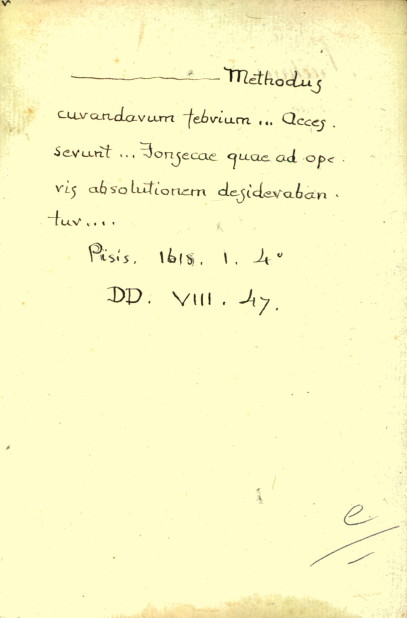 ——— Methodus
curandarum febrium ... Acces.
serunt ... Fonsecae quae ad ope.
ris absolutionem desideraban.
tur....
Pisis. 1618. 1. 4°
DD. VIII. 47.
e